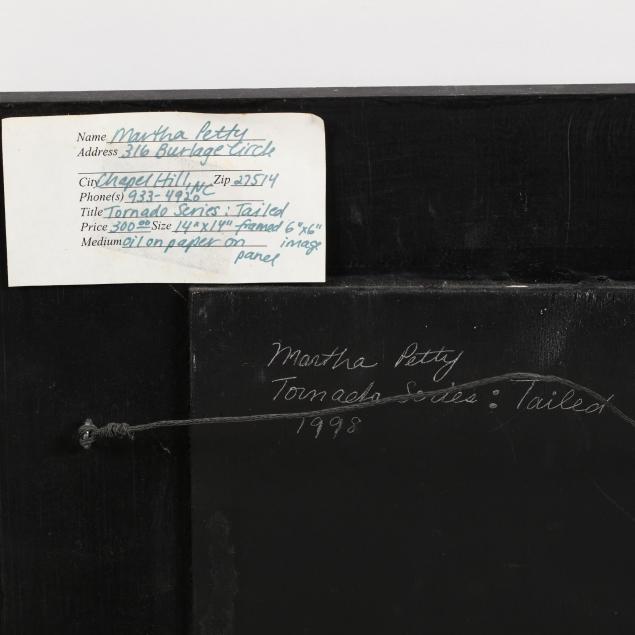 Name Martha Petty
Address 316 Burlage Circle
City Chapel Hill, NC Zip 27514
Phone(s) 933-4920
Title Tornado Series: Tailed
Price 300.00 Size 14"x14" framed 6"x6" image
Medium oil on paper on panel
Martha Petty
Tornado Series: Tailed
1998